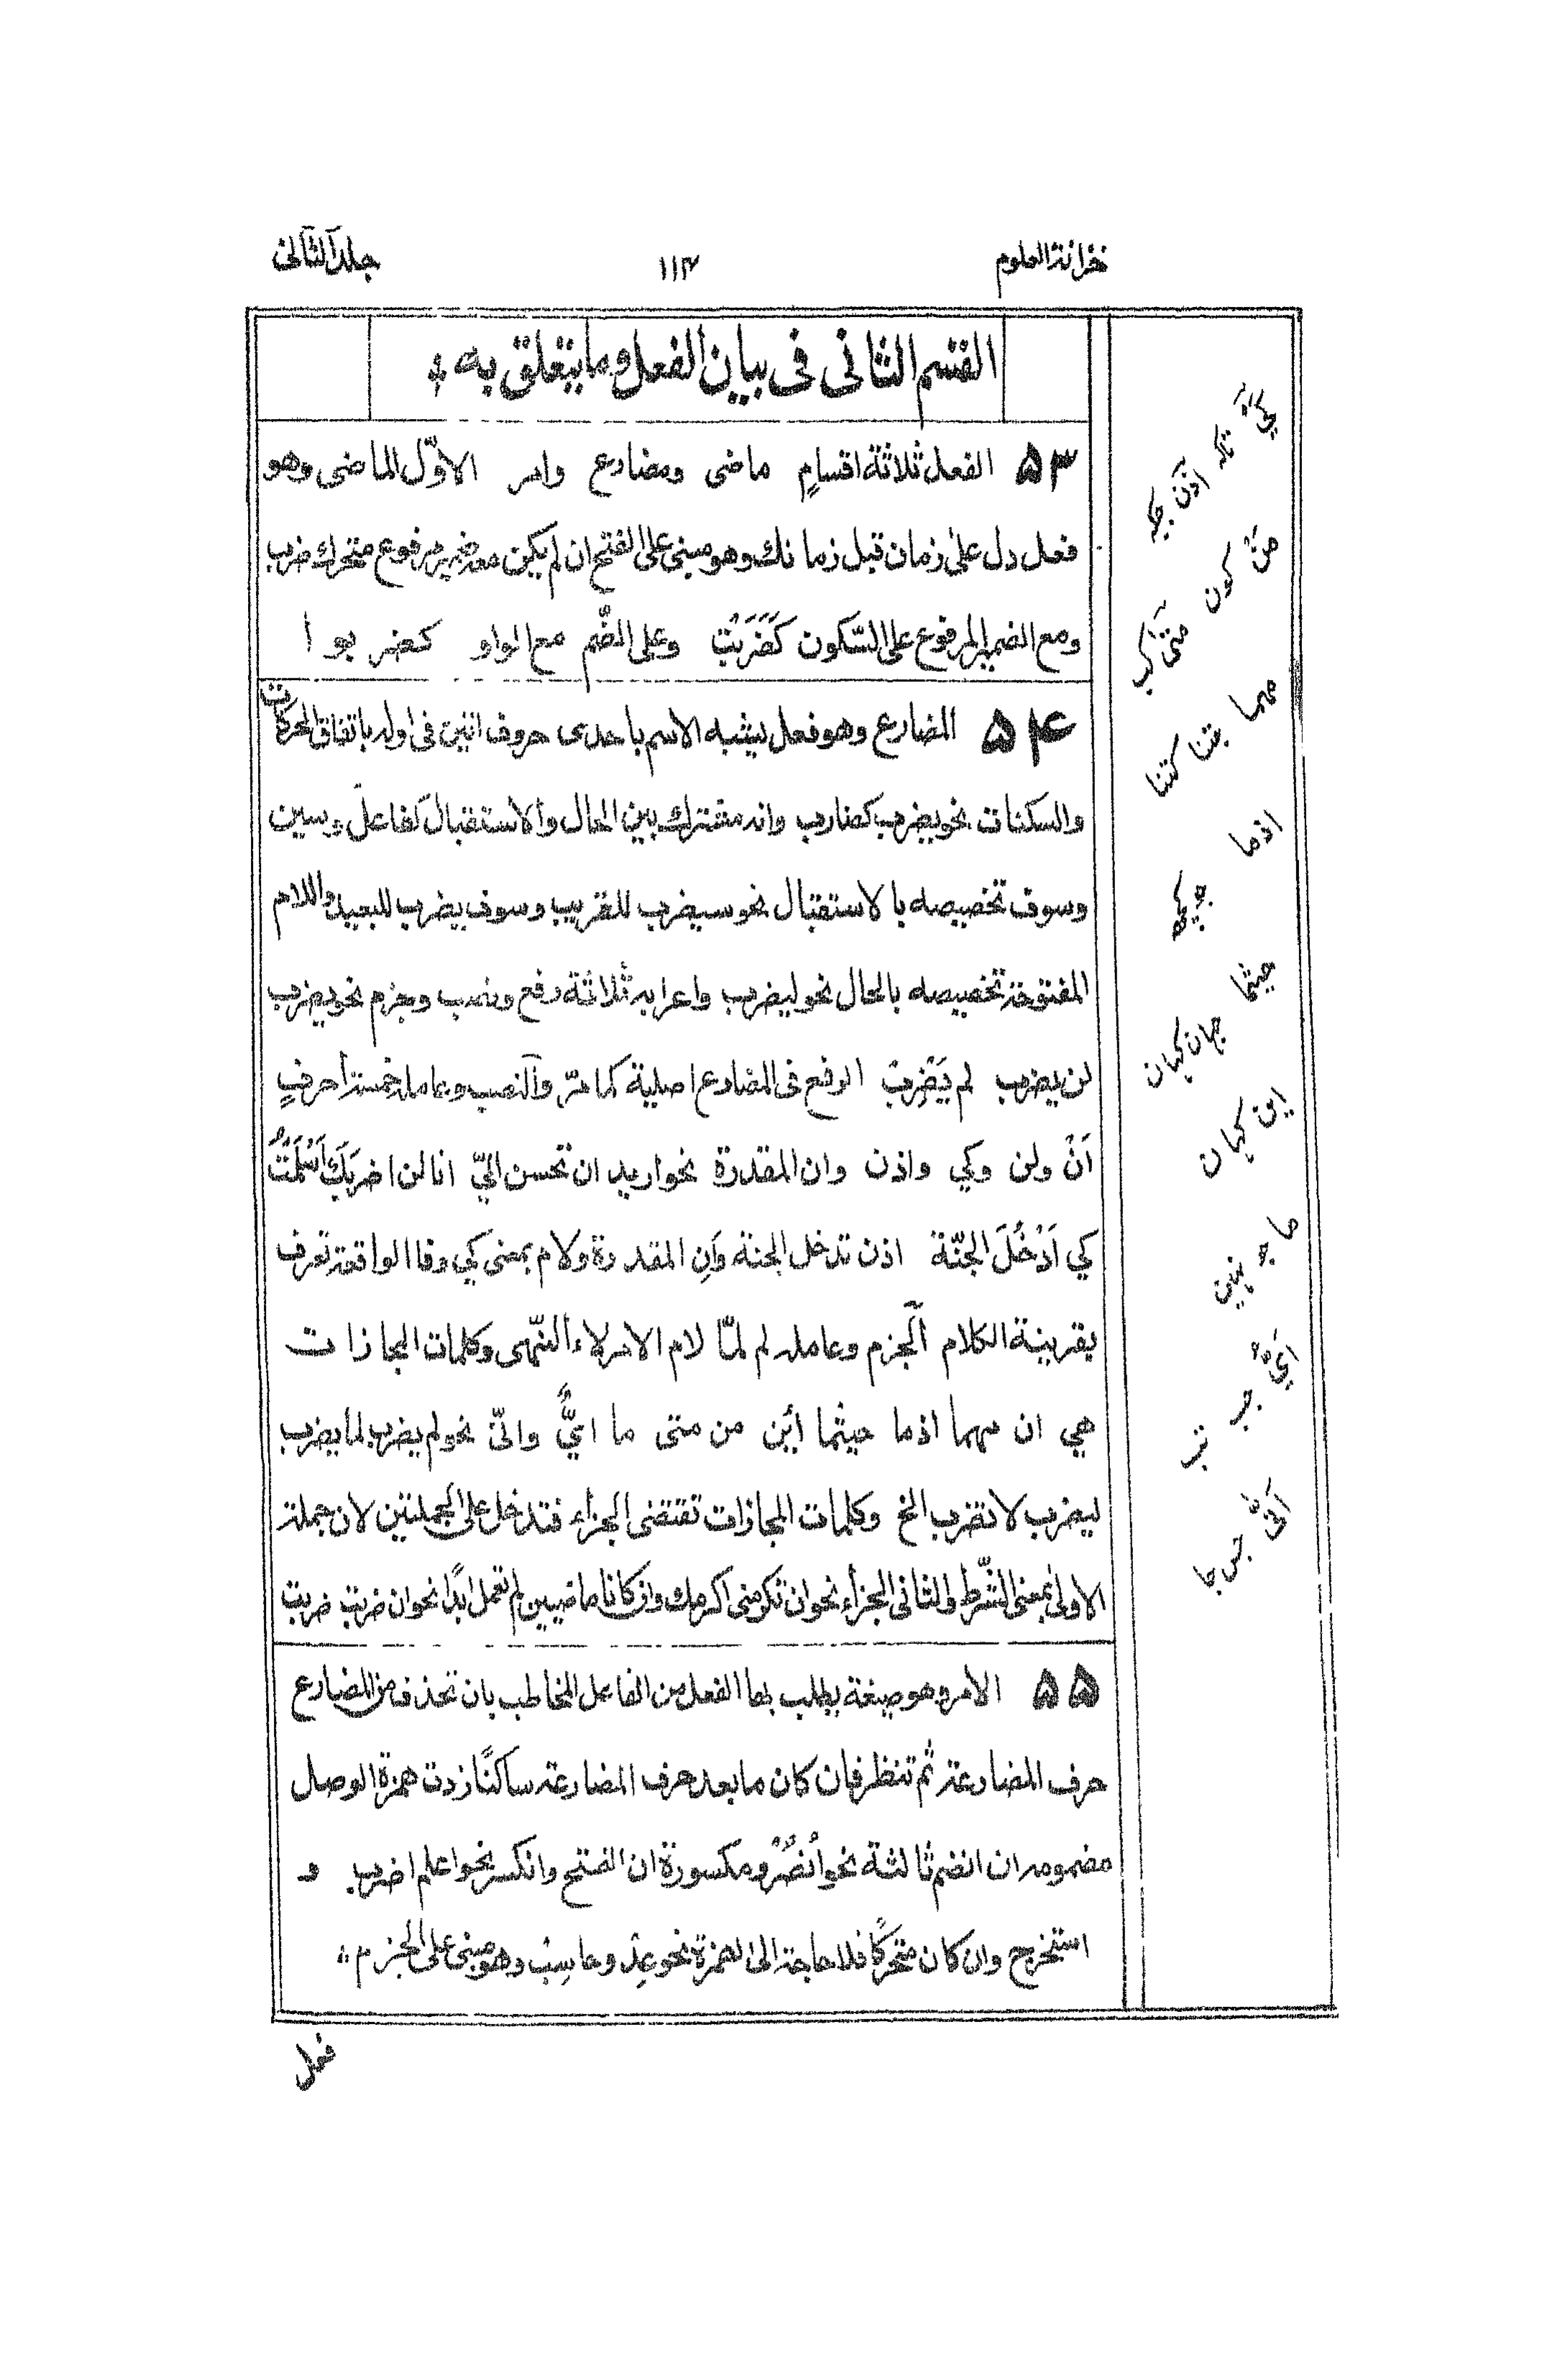 خزانة العلوم ۱۱۴ جلد الثانی
القسم الثانی فی بیان الفعل وما یتعلق به
۵۳ الفعل ثلاثة اقسامٍ ماضی ومضارع وامر الاوّل الماضی وهو
فعل دل علیٰ زمان قبل زمانك وهو مبنی علی الفتح ان لم یكن معه ضمیر مرفوع متحرك ضرب
ومع الضمیر المرفوع علی السّكون كَضَرَبْتُ وعلی الضّم مع الواو كضربوا
۵۴ المضارع وهو فعل یشبه الاسم باحدی حروف اتین فی اوله باتفاق الحركات
والسكنات نحو یضرب كضارب وانه مشترك بین الحال والاستقبال كفاعل وبسین
وسوف تخصیصه بالاستقبال نحو سیضرب للقریب وسوف یضرب للبعید واللام
المفتوحة تخصیصه بالحال نحو لیضرب واعرابه ثلاثة رفع ونصب وجزم نحو یضرب
لن یضرب لم یَضْرِبْ الرفع فی المضارع اصلیة كما مرّ والنصب وعامله خمسة احرفٍ
اَنْ ولن وكي واذن وان المقدرة نحو ارید ان تحسن الیّ انا لن اضربَكَ اَسْلَمْتُ
كي اَدْخُلَ الجَنّة اذن تدخل الجنة وَاَنِ المقدرة ولام بمعنی كي وفا الواقعة تعرف
بقرینة الكلام اَلجزم وعامله لم لمّا لام الامر لاء النّهی وكلمات المجازات
هي ان مهما اذما حیثما أین من متی ما ایٌّ وانّیٰ نحو لم یضرب لما یضرب
لیضرب لا تضرب الخ وكلمات المجازات تقتضی الجزاء فتدخل علی الجملتین لان جملة
الاولیٰ بمعنی الشّرط والثانی الجزاء نحو ان تكرمنی اكرمك وان كانا ماضیین لم تعمل ابدًا نحو ان ضربتَ ضربتُ
۵۵ الامر وهو صیغة یطلب بها الفعل من الفاعل المخاطب بان تحذف من المضارع
حرف المضارعة ثم تنظر فان كان ما بعد حرف المضارعة ساكنًا زدت همزة الوصل
مضمومه ان انضم ثالثة نحو اُنْصُرْ ومكسورة ان انفتح وانكسر نحو اعلم اضرب و
استخرج وان كان متحركًا فلا حاجة الی الهمزة نحو عِدْ وحاسِبْ وهو مبنی علی الجزم
فعل
كَيْ تاكه اذن جبكه
مَنْ كون متی كب
مهما جتنا كتنا
اذما جوكچھ
حیثما جہاں كہاں
این كہاں
ما جو نہیں
اَيٌّ جب تب
اَنّیٰ جس جا